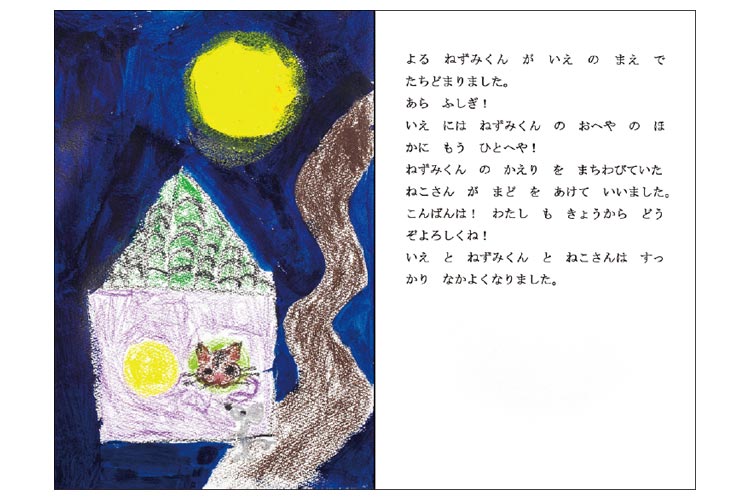 よる　ねずみくん　が　いえ　の　まえ　で
たちどまりました。
あら　ふしぎ！
いえ　には　ねずみくん　の　おへや　の　ほ
かに　もう　ひとへや！
ねずみくん　の　かえり　を　まちわびていた
ねこさん　が　まど　を　あけて　いいました。
こんばんは！　わたし　も　きょうから　どう
ぞよろしくね！
いえ　と　ねずみくん　と　ねこさんは　すっ
かり　なかよくなりました。